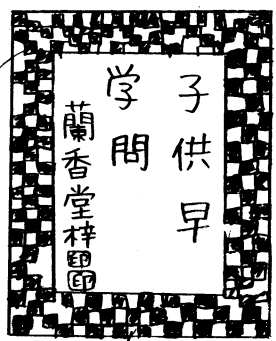 子供早
学問
蘭香堂梓